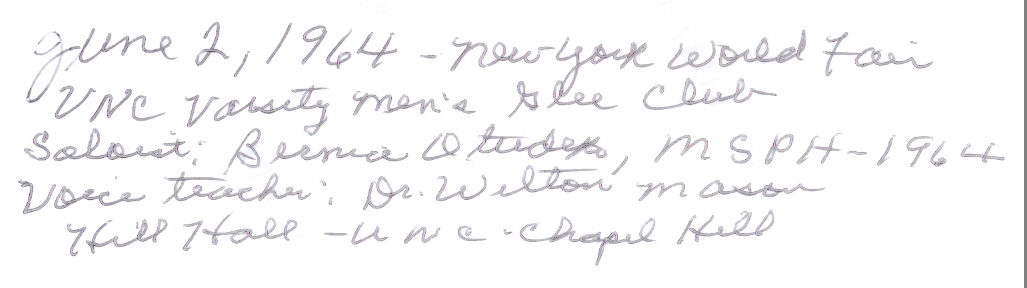 June 2, 1964 - New York World Fair
UNC Varsity Men's Glee Club
Soloist: Bernice, MSPH-1964
Voice teacher: Dr. Wilton Mason
Hill Hall - UNC - Chapel Hill